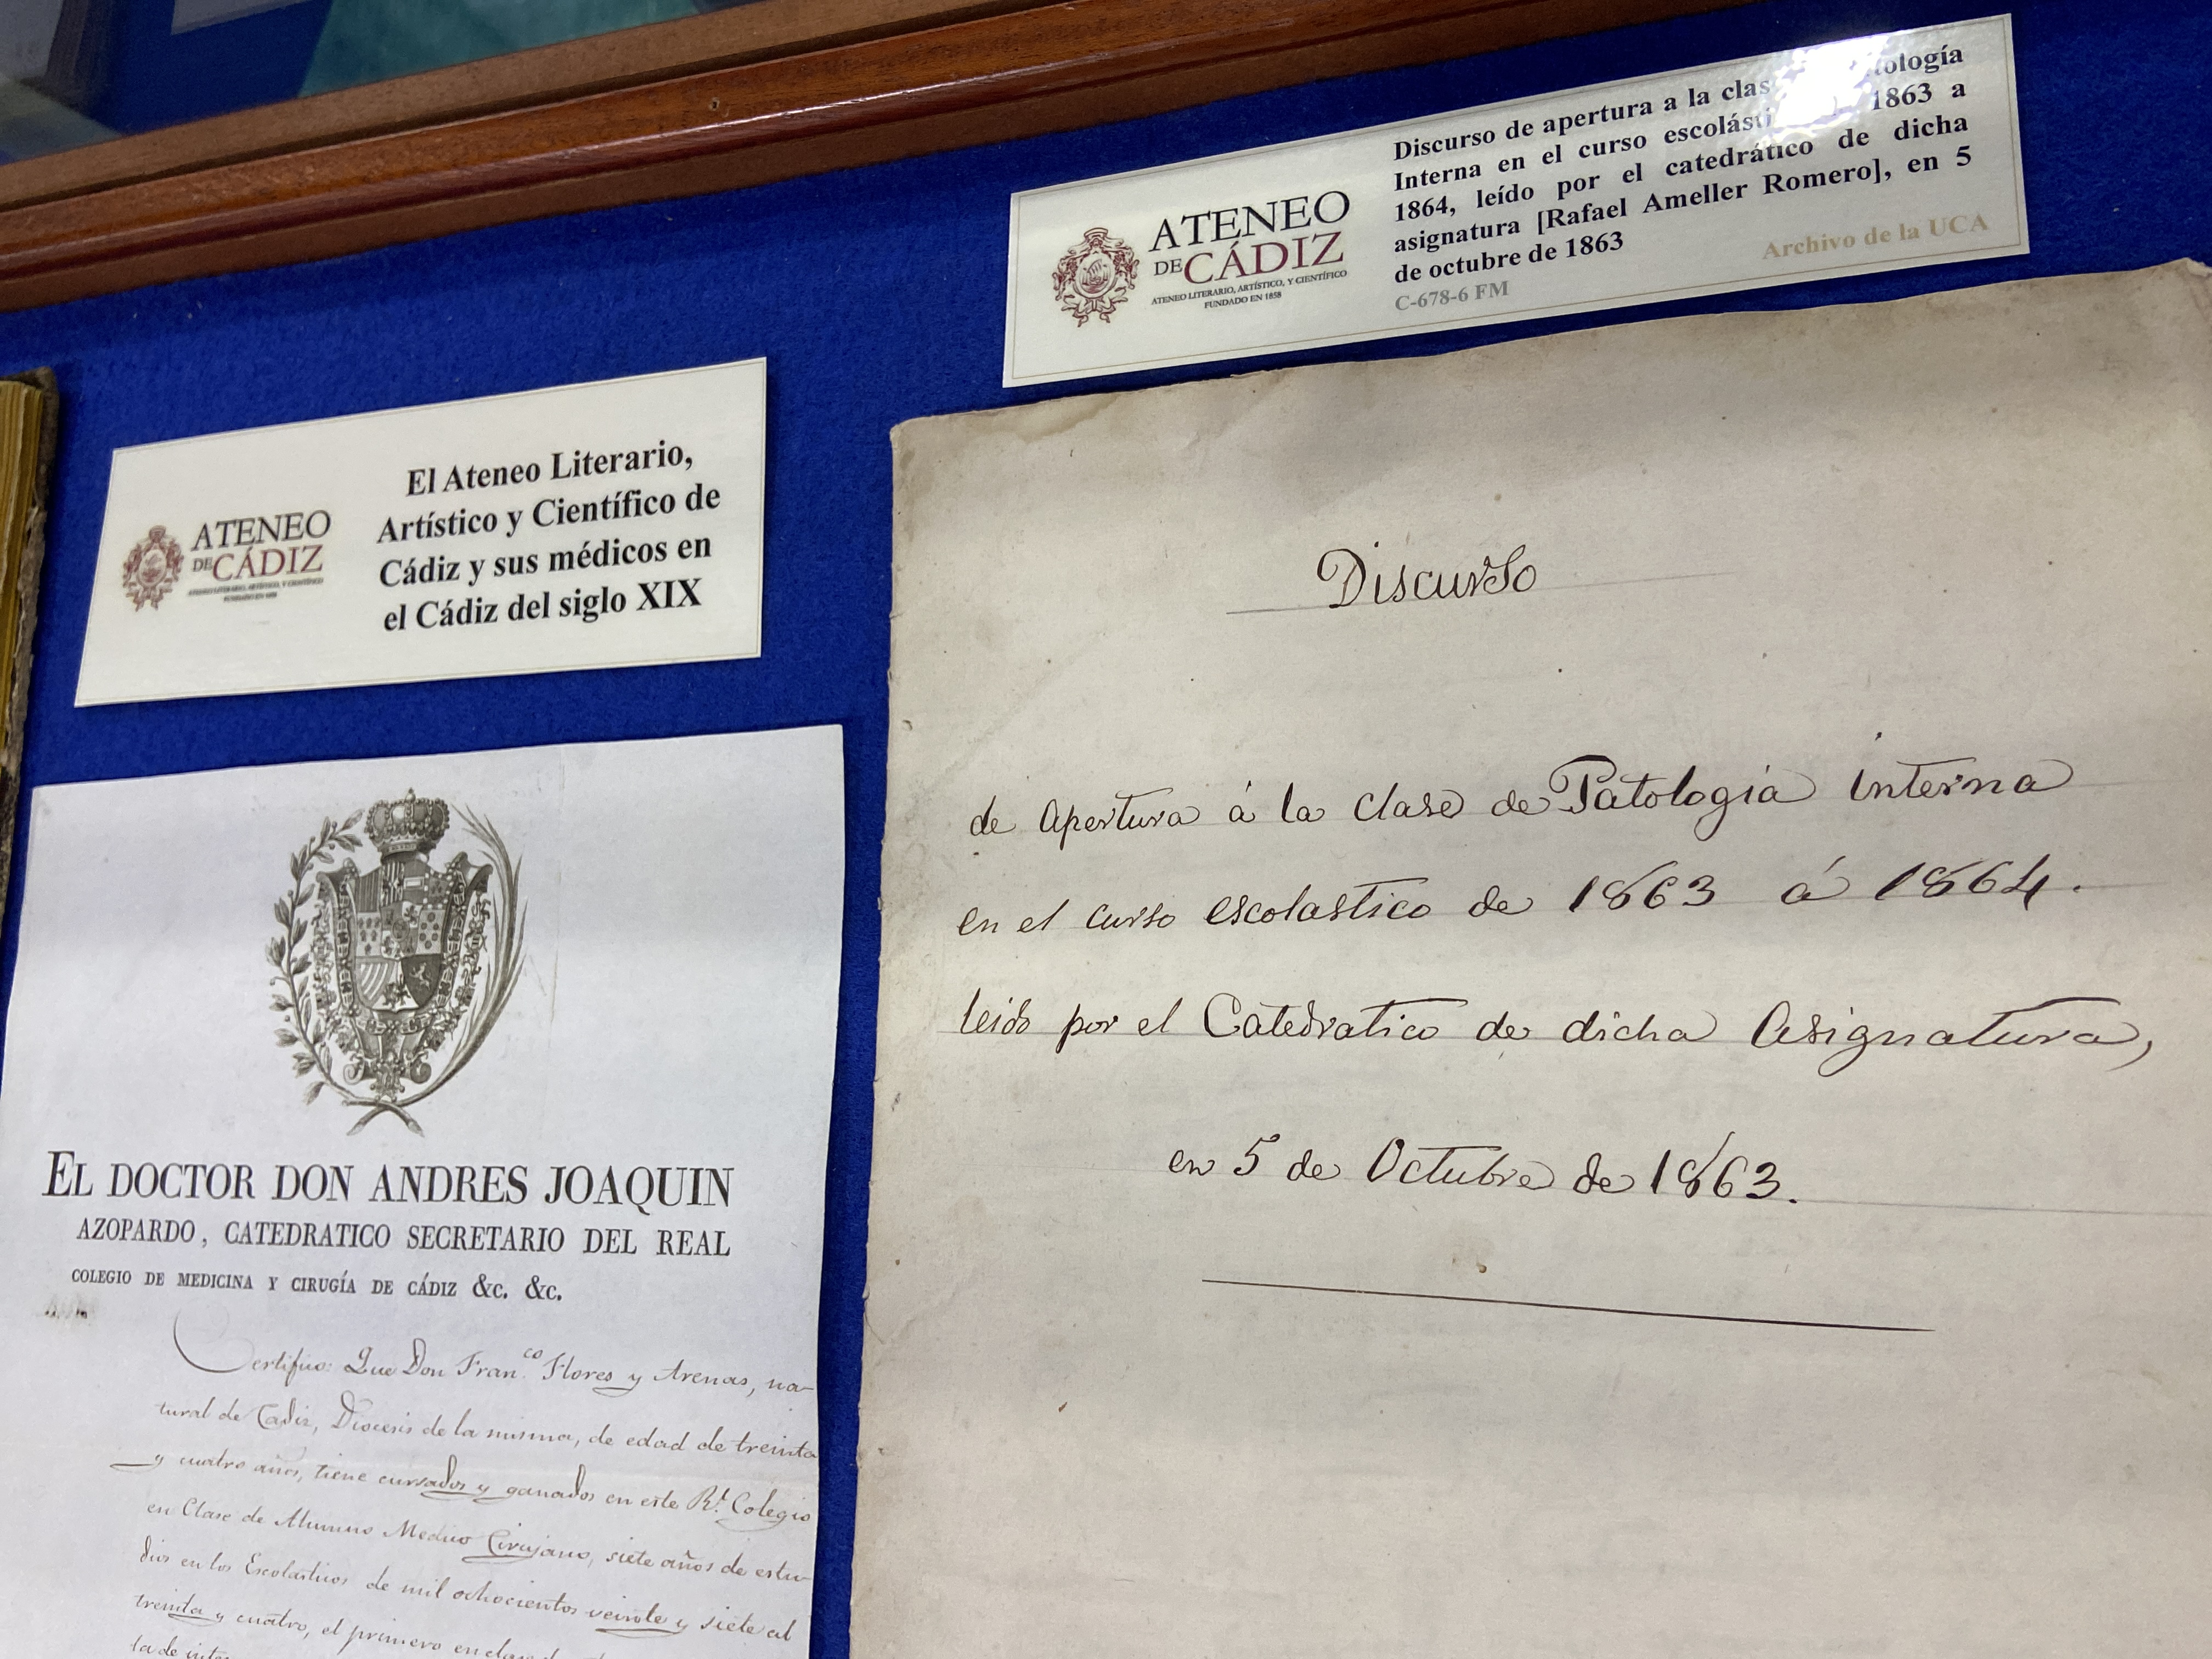 Discurso de apertura a la tología
Interna en el curso 1863 a
1864, leído por el catedrático de dicha
asignatura [Rafael Ameller Romero], en 5
de octubre de 1863
C-678-6 FM
Archivo de la UCA
ATENEO
DE CÁDIZ
ATENEO LITERARIO, ARTÍSTICO, Y CIENTÍFICO
FUNDADO EN 1858
El Ateneo Literario,
Artístico y Científico de
Cádiz y sus médicos en
el Cádiz del siglo XIX
ATENEO
DE CÁDIZ
ATENEO LITERARIO, ARTÍSTICO, Y CIENTÍFICO
FUNDADO EN 1858
Discurso
de apertura á la clase de Patologia interna
en el curso escolastico de 1863 á 1864.
leido por el Catedratico de dicha Asignatura,
en 5 de Octubre de 1863.
EL DOCTOR DON ANDRES JOAQUIN
AZOPARDO, CATEDRATICO SECRETARIO DEL REAL
COLEGIO DE MEDICINA Y CIRUGÍA DE CÁDIZ &c. &c.
Certifico: Que Don Fran.co Flores y Arenas, na-
tural de Cadiz, Diocesis de la misma, de edad de treinta
y cuatro años, tiene cursados y ganados en este Rl. Colegio
en Clase de Alumno Medico Cirujano, siete años de estu-
dios en los Escolasticos de mil ochocientos veinte y siete al
treinta y cuatro, el primero en clase
la de